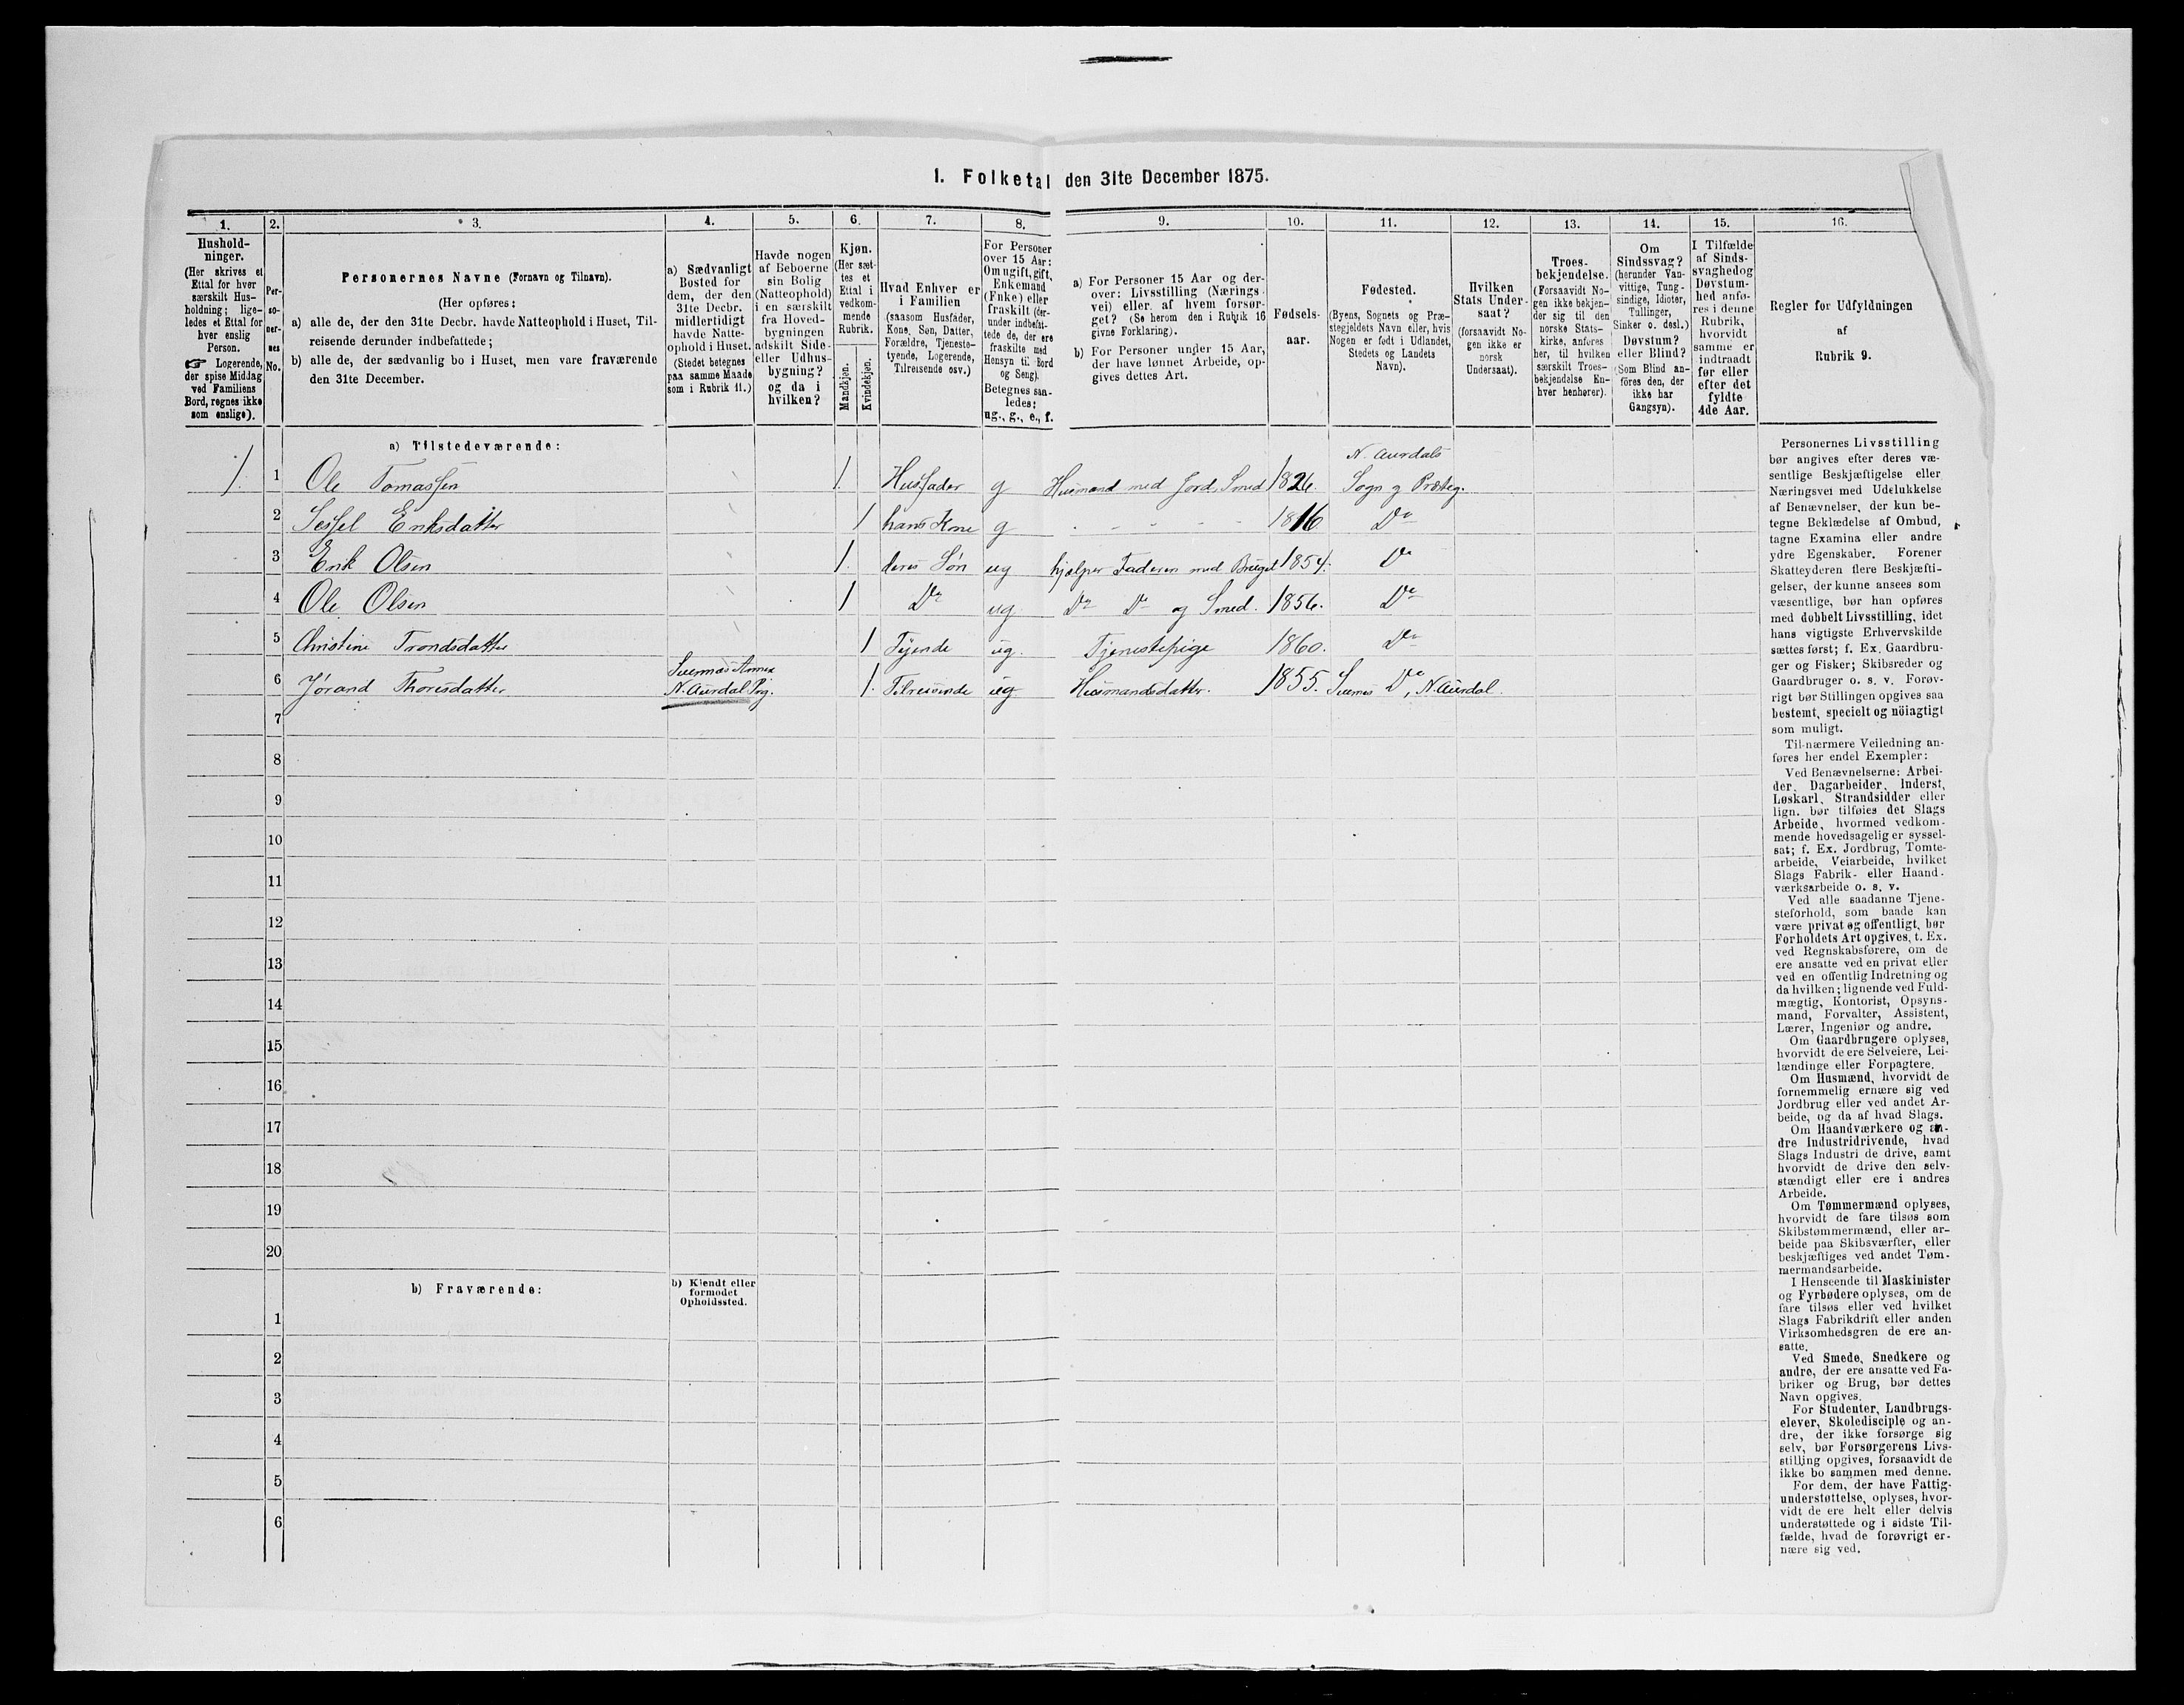 1. Folketal den 31te December 1875.
1.
Hushold-
ninger.
(Her skrives et
Ettal for hver
særskilt Hus-
holdning; lige-
ledes et Ettal for
hver enslig
Person.
☞ Logerende,
der spise Middag
ved Familiens
Bord, regnes ikke
som enslige).
2.
Per-
so-
ner-
nes
No.
3.
Personernes Navne (Fornavn og Tilnavn).
(Her opføres:
a) alle de, der den 31te Decbr. havde Natteophold i Huset, Til-
reisende derunder indbefattede;
b) alle de, der sædvanlig bo i Huset, men vare fraværende
den 31te December.
4.
a) Sædvanligt
Bosted for
dem, der den
31te Decbr.
midlertidigt
havde Natte-
ophold i Huset.
(Stedet betegnes
paa samme Maade
som i Rubrik 11.)
5.
Havde nogen
af Beboerne
sin Bolig
(Natteophold)
i en særskilt
fra Hoved-
bygningen
adskilt Side-
eller Udhus-
bygning?
og da i
hvilken?
6.
Kjøn.
(Her sæt-
tes et
Ettal i
vedkom-
mende
Rubrik.
Mandkjøn.
Kvindekjøn.
7.
Hvad Enhver er
i Familien
(saasom Husfader,
Kone, Søn, Datter,
Forældre, Tjeneste-
tyende, Logerende,
Tilreisende osv.)
8.
For Personer
over 15 Aar:
Om ugift, gift,
Enkemand
(Enke) eller
fraskilt (der-
under indbefat-
tede de, der ere
fraskilte med
Hensyn til Bord
og Seng).
Betegnes saa-
ledes:
ug., g., e., f.
9.
a) For Personer 15 Aar og der-
over: Livsstilling (Nærings-
vei) eller af hvem forsør-
get? (Se herom den i Rubrik 16
givne Forklaring).
b) For Personer under 15 Aar,
der have lønnet Arbeide, op-
gives dettes Art.
10.
Fødsels-
aar.
11.
Fødested.
(Byens, Sognets og Præ-
stegjeldets Navn eller, hvis
Nogen er født i Udlandet,
Stedets og Landets
Navn).
12.
Hvilken
Stats Under-
saat?
(forsaavidt No-
gen ikke er
norsk
Undersaat).
13.
Troes-
bekjendelse.
(Forsaavidt No-
gen ikke bekjen-
der sig til den
norske Stats-
kirke, anføres
her, til hvilken
særskilt Troes-
bekjendelse En-
hver henhører).
14.
Om
Sindssvag?
(herunder Van-
vittige, Tung-
sindige, Idioter,
Tullinger,
Sinker o. desl.)
Døvstum?
eller Blind?
(Som Blind an-
føres den, der
ikke har
Gangsyn).
15.
I Tilfælde
af Sinds-
svaghed og
Døvstum-
hed anfø-
res i denne
Rubrik,
hvorvidt
samme er
indtraadt
før eller
efter det
fyldte
4de Aar.
16.
Regler for Udfyldningen
af
Rubrik 9.
a) Tilstedeværende:
N. Aurdals
1. 1 Ole Tomassen 1. Husfader g Husmand med Jord, Smed 1826. Sogn g Præsteg.
2 Sessel Eriksdatter 1 hans Kone g - - - - - 1816 Do
3 Erik Olsen 1. deres Søn ug hjælper Faderen med Bruget 1854. Do
4 Ole Olsen 1 Do ug Do Do og Smed. 1856. Do
5 Christine Trondsdatter 1 Tyende ug. Tjenestepige 1860. Do
Svennes Annex
6 Jørand Thoresdatter N. Aurdal Prg. 1. Tilreisende ug Husmandsdatter. 1855. Svennes Do, N. Aurdal.
7
8
9
10
11
12
13
14
15
16
17
18
19
20
b) Fraværende:
b) Kjendt eller
formodet
Opholdssted.
1
2
3
4
5
6
Personernes Livsstilling
bør angives efter deres væ-
sentlige Beskjæftigelse eller
Næringsvei med Udelukkelse
af Benævnelser, der kun be-
tegne Beklædelse af Ombud,
tagne Examina eller andre
ydre Egenskaber. Forener
Skatteyderen flere Beskjæfti-
gelser, der kunne ansees som
væsentlige, bør han opføres
med dobbelt Livsstilling, idet
hans vigtigste Erhvervskilde
sættes først; f. Ex. Gaardbru-
ger og Fisker; Skibsreder og
Gaardbruger o. s. v. Forøv-
rigt bør Stillingen opgives saa
bestemt, specielt og nöiagtigt
som muligt.
Til nærmere Veiledning an-
føres her endel Exempler:
Ved Benævnelserne: Arbei-
der, Dagarbeider, Inderst,
Løskarl, Strandsidder eller
lign. bør tilføies det Slags
Arbeide, hvormed vedkom-
mende hovedsagelig er syssel-
sat; f. Ex. Jordbrug, Tomte-
arbeide, Veiarbeide, hvilket
Slags Fabrik- eller Haand-
værksarbeide o. s. v.
Ved alle saadanne Tjene-
steforhold, som baade kan
være privat og offentligt, bør
Forholdets Art opgives, t. Ex.
ved Regnskabsførere, om de
ere ansatte ved en privat eller
ved en offentlig Indretning og
da hvilken; lignende ved Fuld-
mægtig, Kontorist, Opsyns-
mand, Forvalter, Assistent,
Lærer, Ingeniør og andre.
Om Gaardbrugere oplyses,
hvorvidt de ere Selveiere, Lei-
lændinge eller Forpagtere.
Om Husmænd, hvorvidt de
fornemmelig ernære sig ved
Jordbrug eller ved andet Ar-
beide, og da af hvad Slags.
Om Haandværkere og an-
dre Industridrivende, hvad
Slags Industri de drive, samt
hvorvidt de drive den selv-
stændigt eller ere i andres
Arbeide.
Om Tømmermænd oplyses,
hvorvidt de fare tilsøs som
Skibstømmermænd, eller ar-
beide paa Skibsværfter, eller
beskjæftiges ved andet Tøm-
mermandsarbeide.
I Henseende til Maskinister
og Fyrbødere oplyses, om de
fare tilsøs eller ved hvilket
Slags Fabrikdrift eller anden
Virksomhedsgren de ere an-
satte.
Ved Smede, Snedkere og
andre, der ere ansatte ved Fa-
briker og Brug, bør dettes
Navn opgives.
For Studenter, Landbrugs-
elever, Skoledisciple og an-
dre, der ikke forsørge sig
selv, bør Forsørgerens Livs-
stilling opgives, forsaavidt de
ikke bo sammen med denne.
For dem, der have Fattig-
understøttelse, oplyses, hvor-
vidt de ere helt eller delvis
understøttede og i sidste Til-
fælde, hvad de forøvrigt er-
nære sig ved.